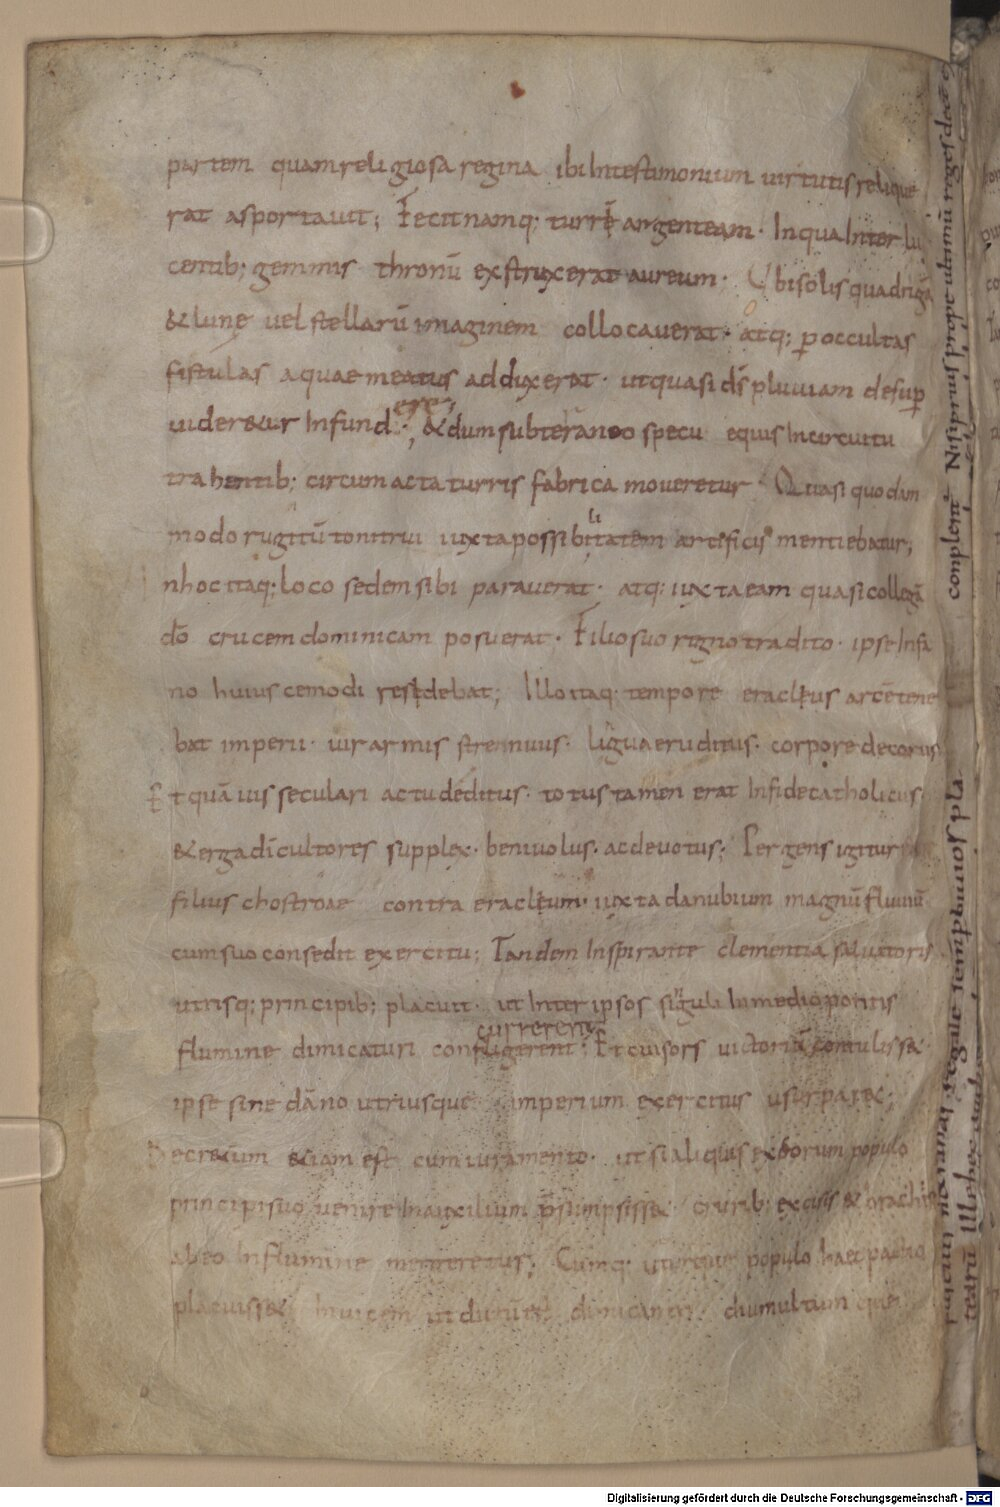 partem quam religiosa regina ibi Intestimonium uirtutis relique
rat asportauit; Fecit namq; turrē argenteam · Inqua Inter lu
centib; gemmis thronū exstruxerat aureum · Ubi solis quadrigā
& lunę uel stellarū imaginem collocauerat · atq; p occultas
fistulas aquae meatus adduxerat · ut quasi dš pluuiam desup
uider&ur Infund ere; & dum subteraneo specu equis Incircuitu
trahentib; circum acta turris fabrica moueretur · Quasi quodam
modo rugitū tonitrui iuxta possibilitatem artificis mentiebatur;
Inhoc itaq; loco sedem sibi parauerat · atq; iuxta eam quasi collegā
dō crucem dominicam posuerat · Filio suo regno tradito · ipse Infa
no huiuscemodi residebat; Illo itaq; tempore eraclius arcē tene
bat imperii · uir armis strennuus · lingua eruditus · corpore decorus
Et quā uis seculari actu deditus · totus tamen erat Infide catholicus
& erga dī cultores supplex · beniuolus · ac deuotus; Pergens igitur
filius chostroae contra eraclium · iuxta danubium magnū fluuiū
cum suo consedit exercitu; Tandem Inspirante clementia saluatoris
utrisq; principib; placuit · ut Inter ipsos singuli In medio pontis
currerent
flumine dimicaturi confligerent; Et cui sors uictoriā contulisse&
ipse sine dāno utriusque imperium exercitus usurpar&;
Decretum &iam est cum iuramento · ut si aliquis ex horum populo
principi suo uenire Inauxilium p̄sumpsisse& · crurib; excisis & brachiis
abeo Influmine mitteretur; Cumq; utrique populo haec pactio
placuisse& Inuicem ut dictū est dimicantes diu multum que
conplent Nisi prius prope ultimū reges deae